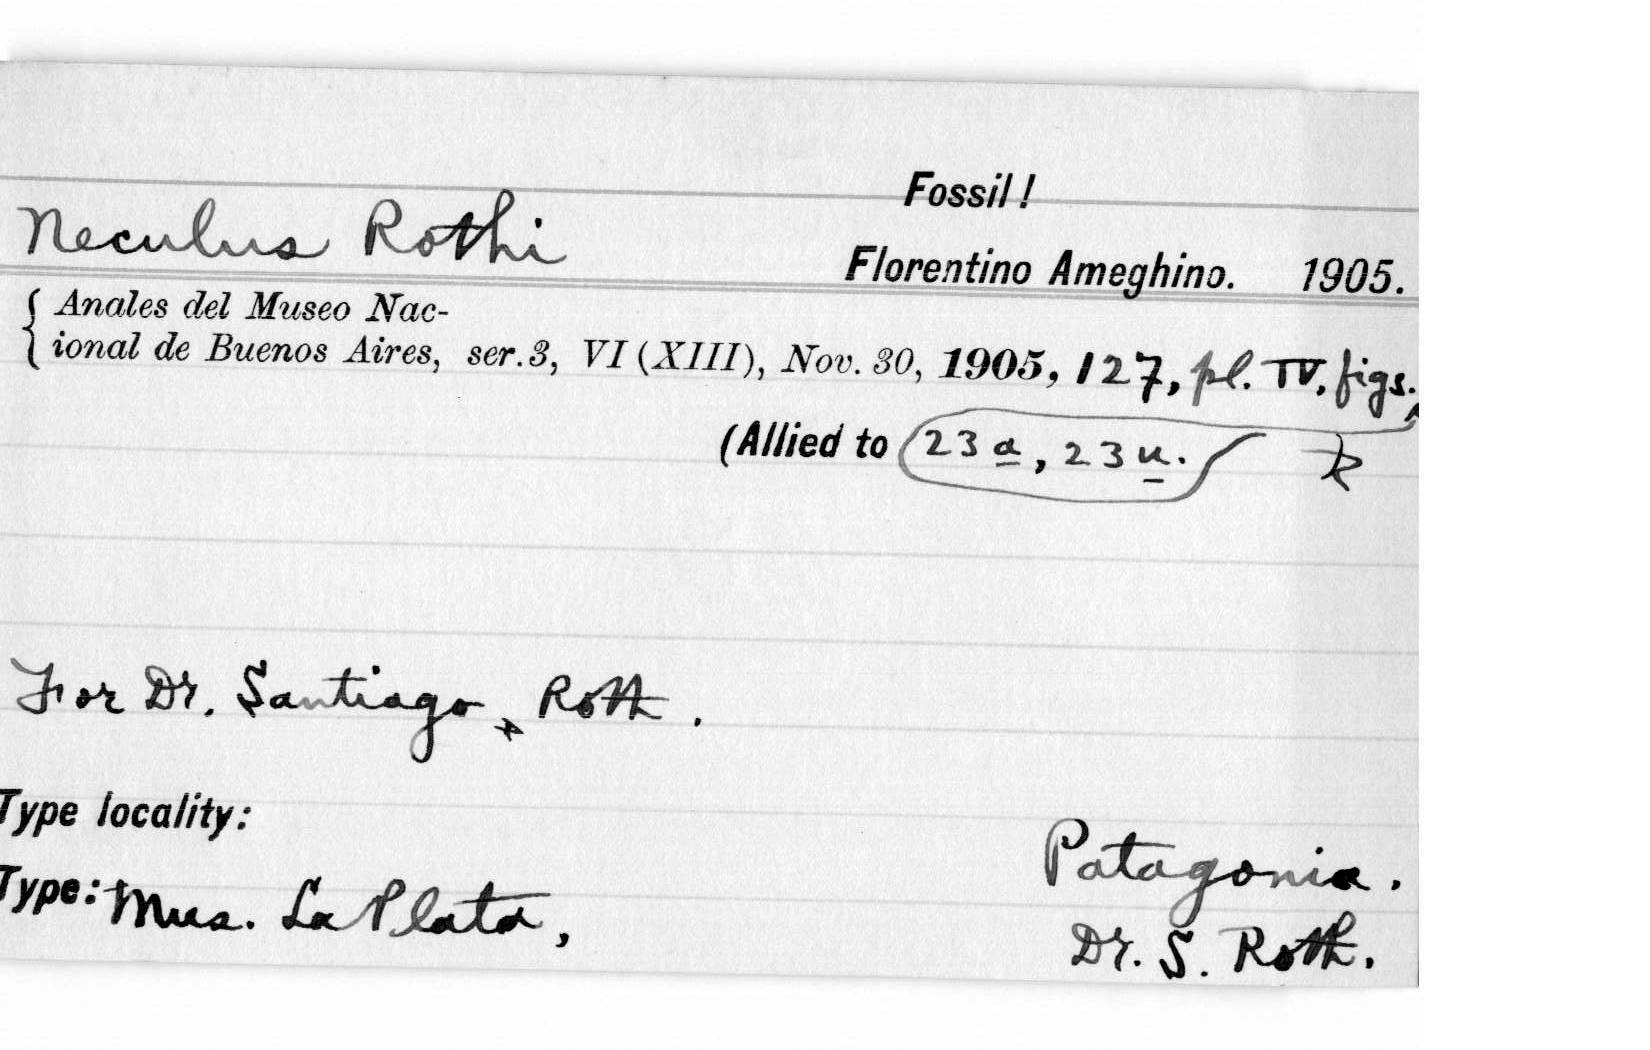 Fossil!
Neculus Rothi
Florentino Ameghino. 1905.
Anales del Museo Nac-
ional de Buenos Aires, ser. 3, VI (XIII), Nov. 30, 1905, 127, pl. IV. figs.
(Allied to 23a, 23u.
For Dr. Santiago Roth.
Type locality:
Patagonia.
Type: Mus. La Plata,
Dr. S. Roth.